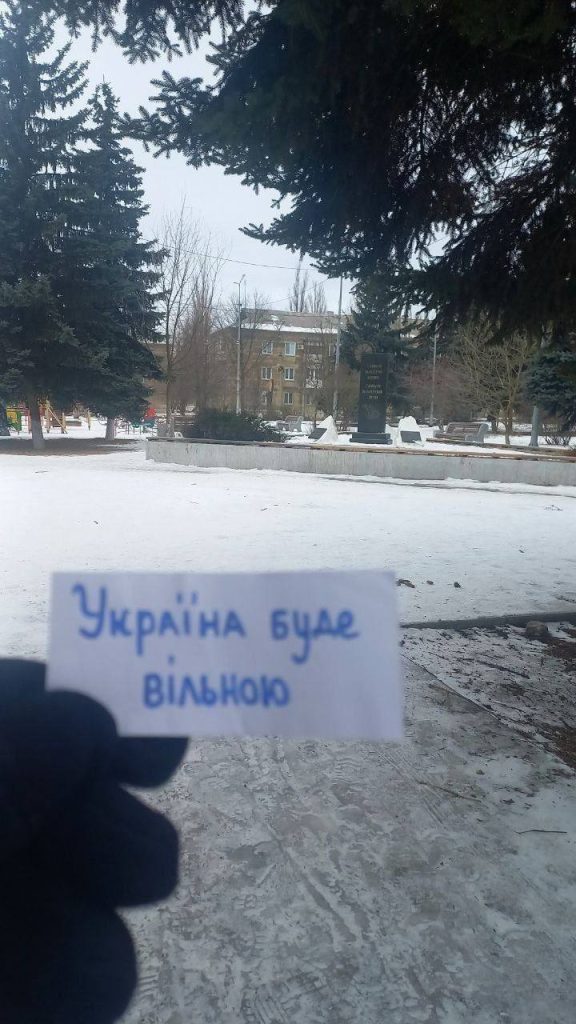 Україна буде
вільною